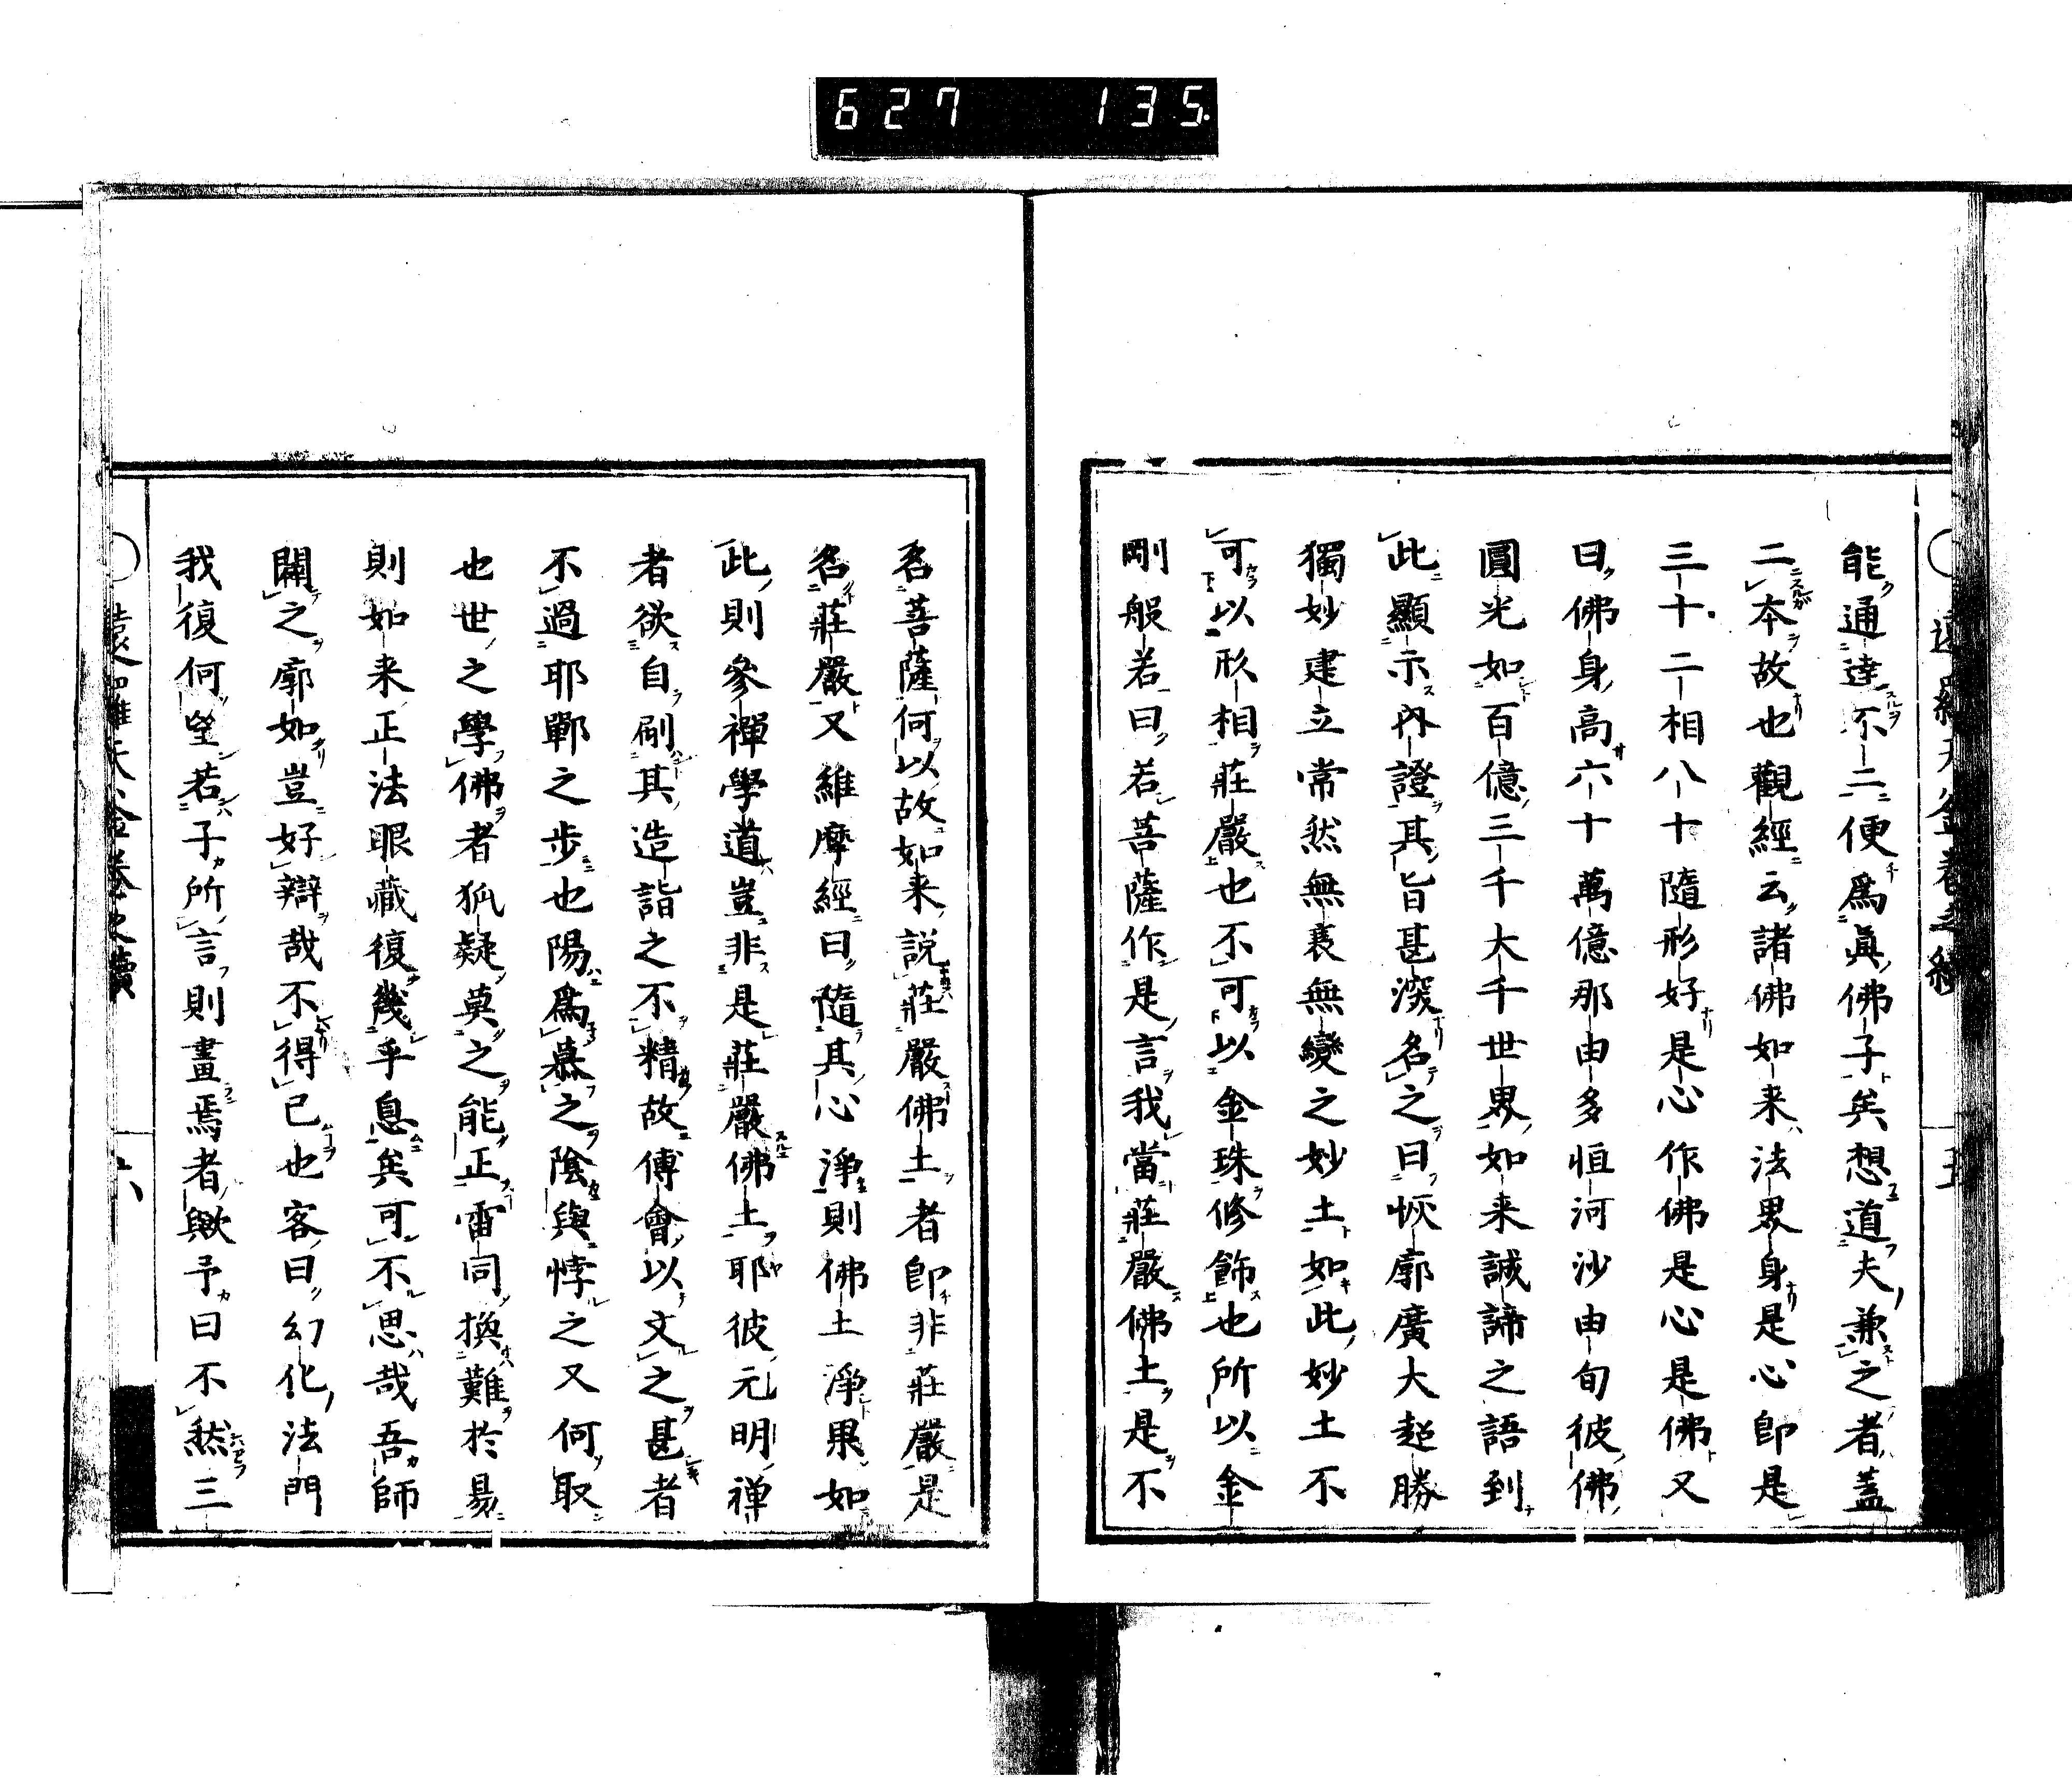 627 135.
能通達不二便爲眞佛子矣想道夫兼之者蓋
二本故也觀經云諸佛如来法界身是心卽是
三十二相八十隨形好是心作佛是心是佛又
曰佛身高六十萬億那由多恒河沙由旬彼佛
圓光如百億三千大千世界如来誠諦之語到
此顯示內證其旨甚深名之曰恢廓廣大超勝
獨妙建立常然無衰無變之妙土如此妙土不
可以形相莊嚴也不可以金珠修飾也所以金
剛般若曰若菩薩作是言我當莊嚴佛土是不
名菩薩何以故如来說莊嚴佛土者卽非莊嚴是
名莊嚴又維摩經曰隨其心淨則佛土淨果如
此則參禪學道豈非是莊嚴佛土耶彼元明禅
者欲自刷其造詣之不精故傅會以文之甚者
不過耶鄲之步也陽爲慕之陰與悖之又何取
也世之學佛者狐疑莫之能正雷同換難於易
則如来正法眼藏復幾乎息矣可不思哉吾師
闢之廓如豈好辯哉不得已也客曰幻化法門
我復何望若子所言則畫焉者歟予曰不然三
六